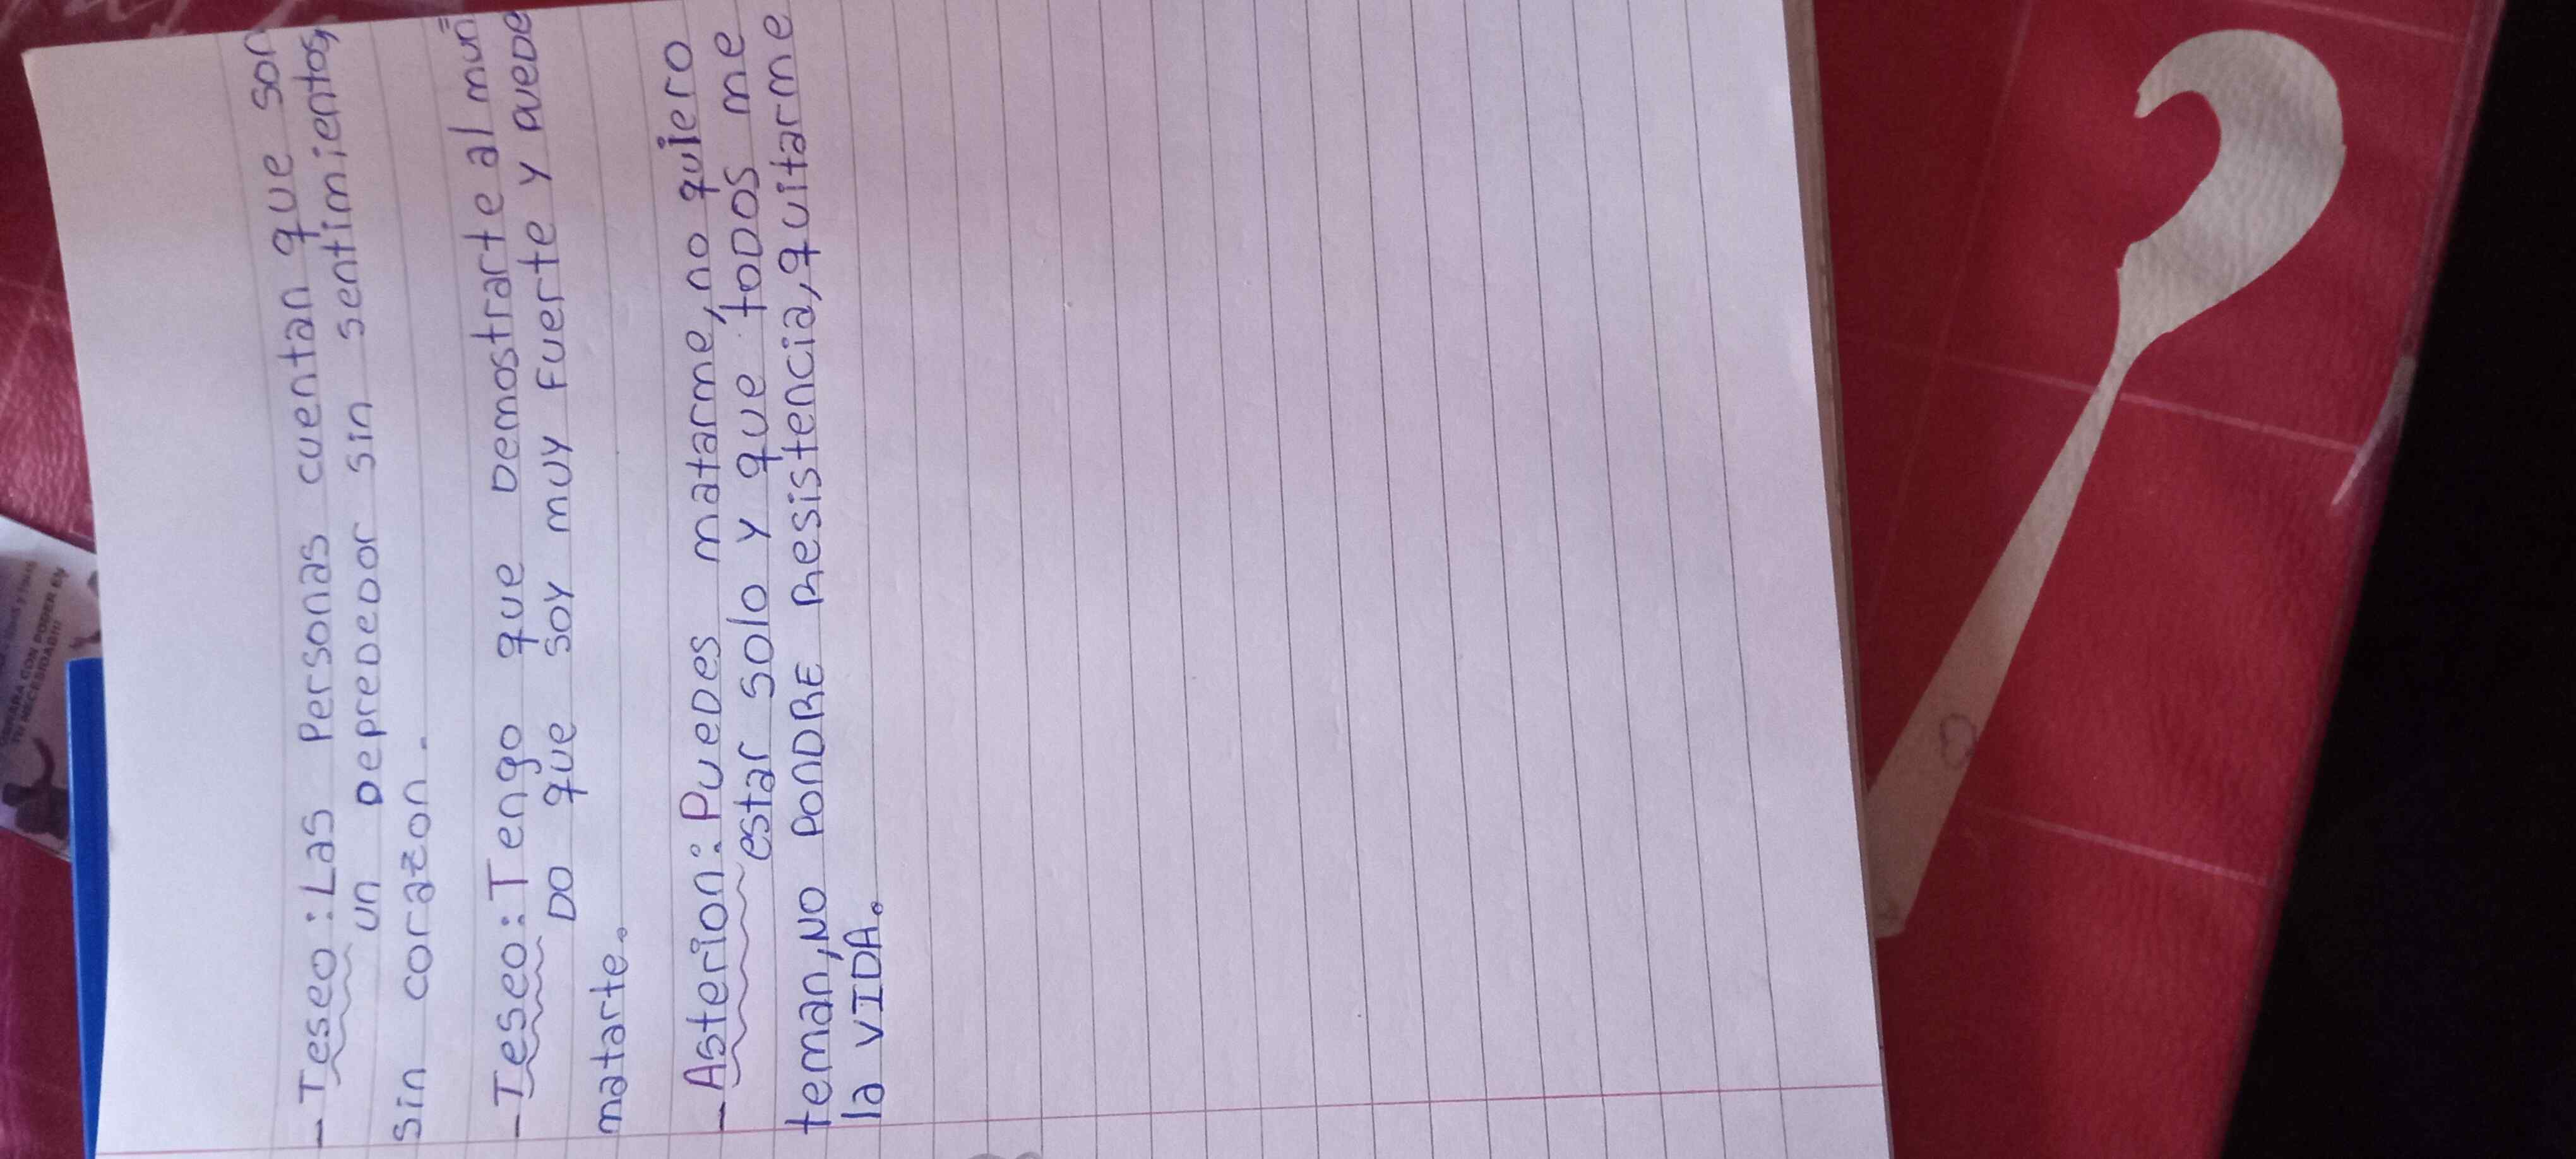 - Teseo: Las Personas cuentan que son
un Depredador sin sentimientos,
sin corazon.
- Teseo: Tengo que Demostrarte al mun=
Do que soy muy fuerte y puede
matarte.
- Asterion: Puedes matarme, no quiero
estar solo y que todos me
teman, no PONDRE Resistencia, quitarme
la VIDA.
CON PODER EN
TU NECESIDAD!!!